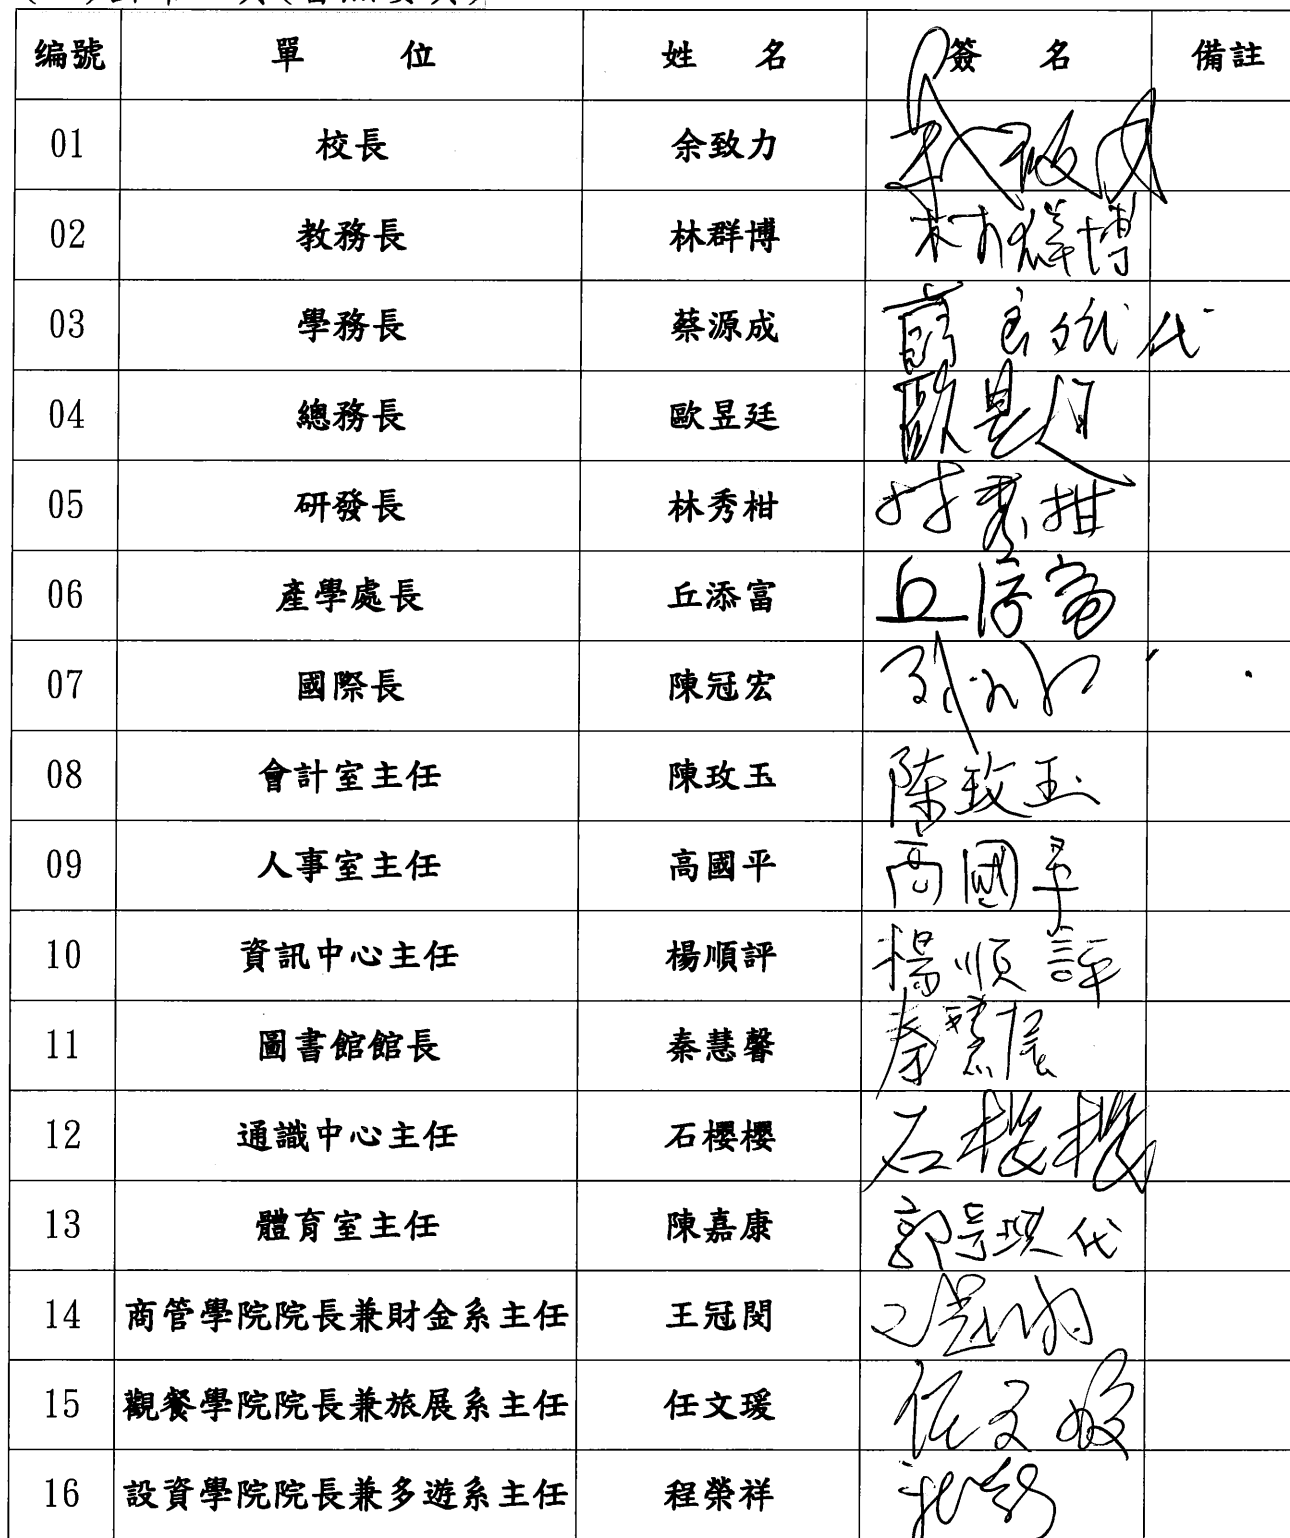 编號 單位 姓名 簽名 備註
01 校長 余致力
02 教務長 林群博 林群博
03 學務長 蔡源成 代
04 總務長 歐昱廷 歐昱廷
05 研發長 林秀柑 林秀柑
06 產學處長 丘添富 丘添富
07 國際長 陳冠宏
08 會計室主任 陳玫玉 陈玫玉
09 人事室主任 高國平 高國平
10 資訊中心主任 楊順評 楊順評
11 圖書館館長 秦慧馨 秦慧馨
12 通識中心主任 石櫻櫻 石櫻櫻
13 體育室主任 陳嘉康 代
14 商管學院院長兼財金系主任 王冠閔
15 觀餐學院院長兼旅展系主任 任文瑗 任文瑗
16 設資學院院長兼多遊系主任 程榮祥